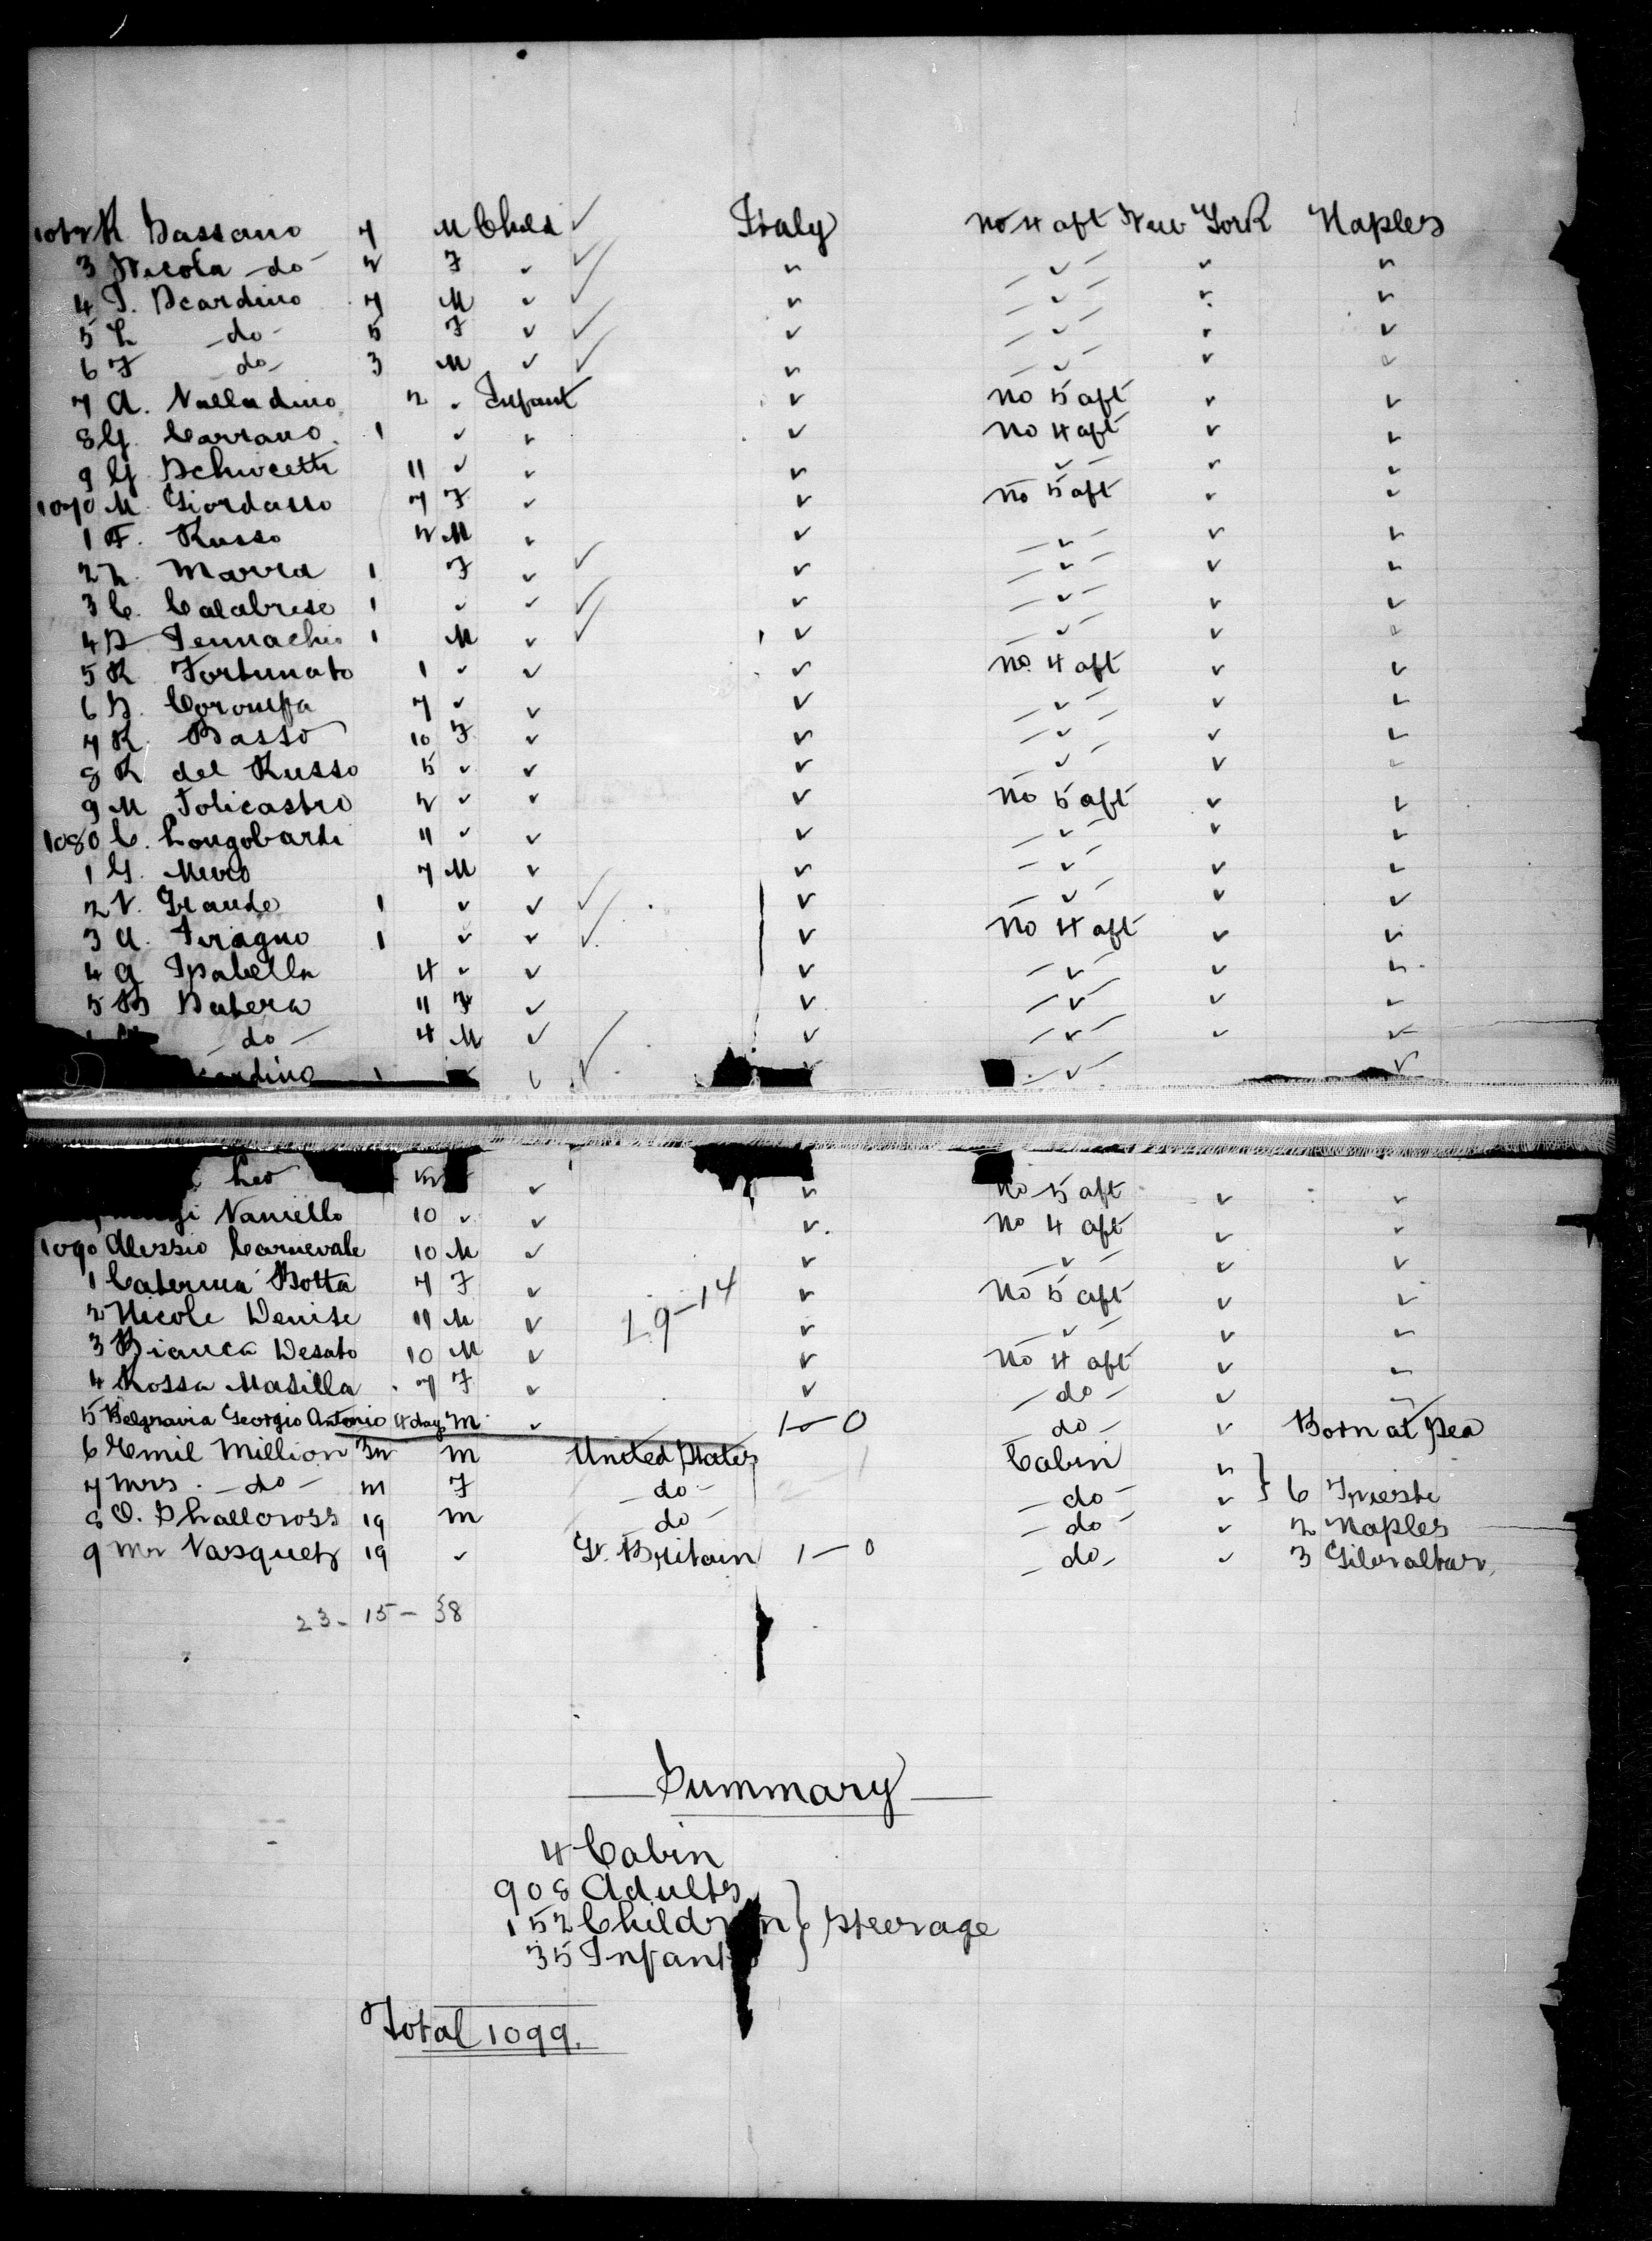 1062 R Sassano 7 M Child ✓ Italy No 4 aft New York Naples
3 Nicola -do- 2 F ✓ ✓ ✓ - ✓ - ✓ ✓
4 P. Scardino 7 M ✓ ✓ ✓ - ✓ - ✓ ✓
5 L -do- 5 F ✓ ✓ ✓ - ✓ - ✓ ✓
6 F do- 3 M ✓ ✓ ✓ - ✓ - ✓ ✓
7 A. Valladino 2 ✓ Infant ✓ No 5 aft ✓ ✓
8 G. Carrano 1 ✓ ✓ ✓ No 4 aft ✓ ✓
9 G 11 ✓ ✓ ✓ ✓ - ✓ ✓
1070 M. Giordasso 7 F ✓ ✓ No 5 aft ✓ ✓
1 F. Russo 2 M ✓ ✓ - ✓ - ✓ ✓
2 L. Marra 1 F ✓ ✓ ✓ - ✓ - ✓ ✓
3 C. Calabrese 1 ✓ ✓ ✓ ✓ - ✓ - ✓ ✓
4 S 1 M ✓ ✓ ✓ - ✓ - ✓ ✓
5 R Fortunato 1 ✓ ✓ ✓ No. 4 aft ✓ ✓
6 S. 7 ✓ ✓ ✓ - ✓ - ✓ ✓
7 R. Basso 10 F ✓ ✓ - ✓ - ✓ ✓
8 R del Russo 5 ✓ ✓ ✓ - ✓ - ✓ ✓
9 M Policastro 2 ✓ ✓ ✓ No 5 aft ✓ ✓
1080 C. Longobardi 11 ✓ ✓ ✓ - ✓ - ✓ ✓
1 G. Muro 7 M ✓ ✓ - ✓ - ✓ ✓
2 V. Grande 1 ✓ ✓ ✓ ✓ - ✓ - ✓ ✓
3 A. Feragno 1 ✓ ✓ ✓ ✓ No 4 aft ✓ ✓
4 G Isabella 4 ✓ ✓ ✓ - ✓ - ✓ ✓
5 B Satera 11 F ✓ ✓ - ✓ - ✓ ✓
do - 4 M ✓ ✓ - ✓ - ✓ ✓
ardino 1 ✓ ✓ ✓ - ✓ - ✓
Leo ✓ ✓ No 5 aft ✓ ✓
Vaniello 10 ✓ ✓ ✓ No 4 aft ✓ ✓
1090 Alessio Carnevale 10 M ✓ ✓ - ✓ - ✓ ✓
1 Caterina Botta 7 F ✓ ✓ No 5 aft ✓ ✓
19-14
2 Nicole Denise 11 M ✓ ✓ - ✓ - ✓ ✓
3 Bianca Desato 10 M ✓ ✓ No 4 aft ✓ ✓
4 Rossa Masilla 7 F ✓ ✓ - do - ✓ ✓
5 Belgravia Georgio Antonio 4 days M ✓ 1-0 - do - ✓ Born at Sea
6 Emil Million m United States Cabin ✓
7 Mrs. - do - m F - do - 2-1 - do - ✓ } 6 Trieste
8 O. Shallcross 19 m - do - - do - ✓ 2 Naples
9 Mr Vasquez 19 ✓ Gt. Britain 1-0 - do - ✓ 3 Gibraltar
23-15-38
Summary
4 Cabin
908 Adults
152 Children } Steerage
35 Infants
Total 1099.